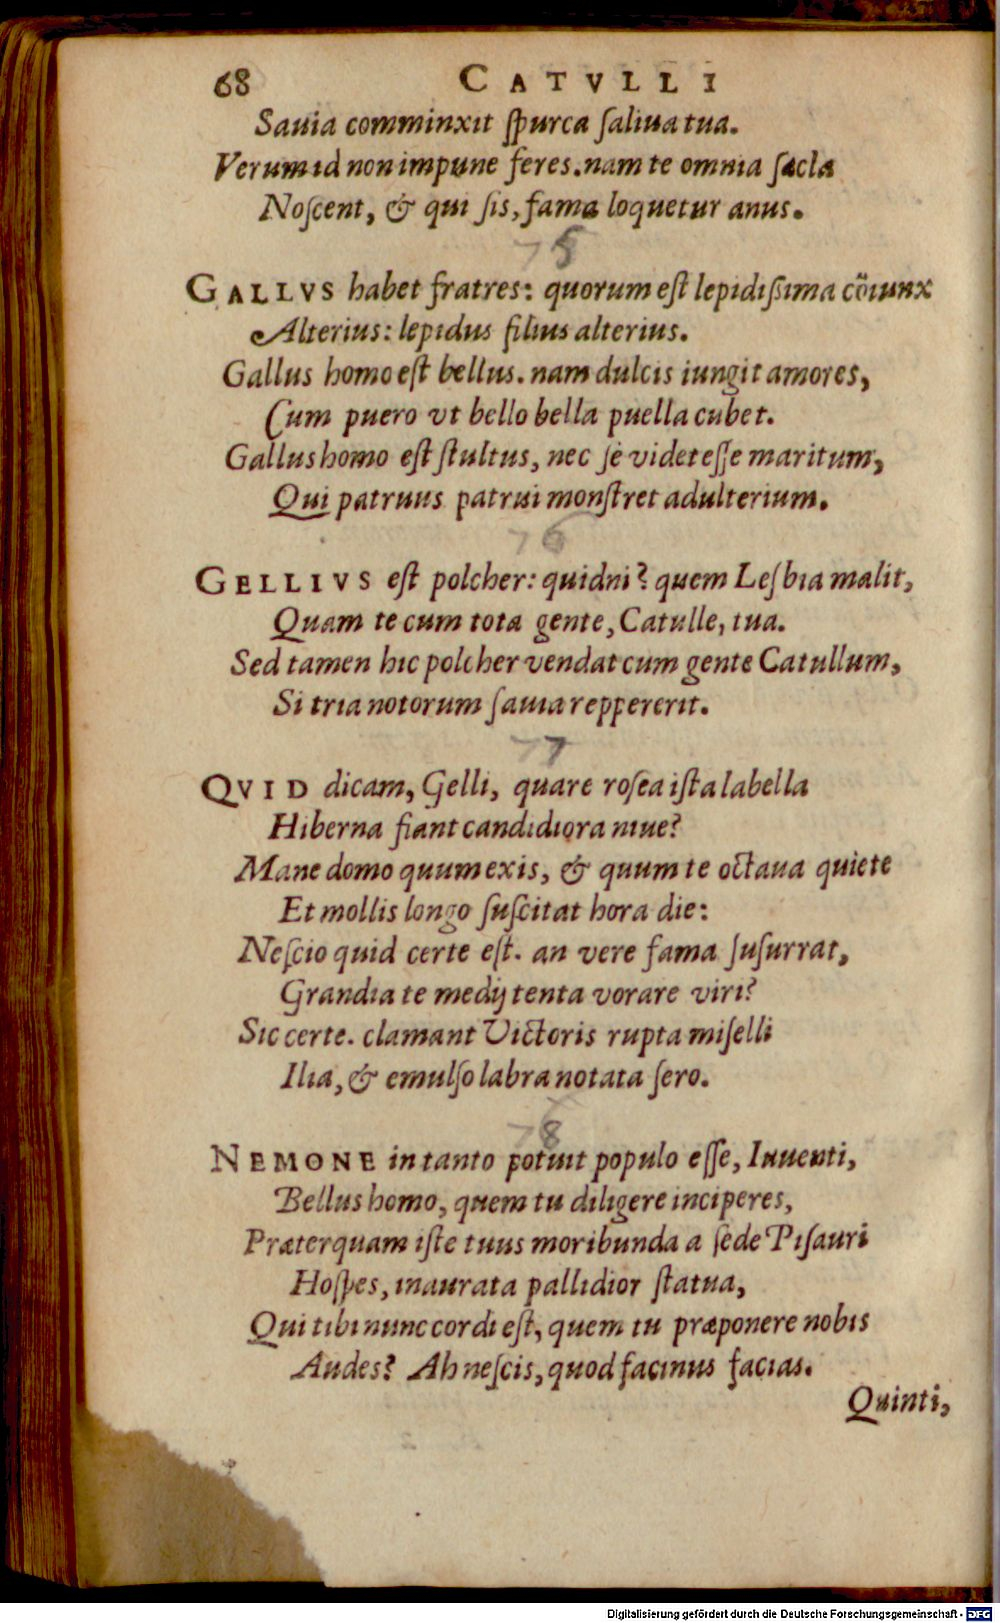 68 CATVLLI
Sauia comminxit ſpurca ſaliua tua.
Verum id non impune feres. nam te omnia ſæcla
Noſcent, & qui ſis, fama loquetur anus.
75
GALLVS habet fratres: quorum eſt lepidißima cōiunx
Alterius: lepidus filius alterius.
Gallus homo eſt bellus. nam dulcis iungit amores,
Cum puero vt bello bella puella cubet.
Gallus homo eſt ſtultus, nec ſe videt eſſe maritum,
Qui patruus patrui monſtret adulterium.
76
GELLIVS eſt polcher: quidni? quem Lesbia malit,
Quam te cum tota gente, Catulle, tua.
Sed tamen hic polcher vendat cum gente Catullum,
Si tria notorum ſauia reppererit.
77
QVID dicam, Gelli, quare roſea iſta labella
Hiberna fiant candidiora niue?
Mane domo quum exis, & quum te octaua quiete
Et mollis longo ſuſcitat hora die:
Neſcio quid certe eſt. an vere fama ſuſurrat,
Grandia te medij tenta vorare viri?
Sic certe. clamant Victoris rupta miſelli
Ilia, & emulſo labra notata ſero.
78
NEMONE in tanto potuit populo eſſe, Iuuenti,
Bellus homo, quem tu diligere inciperes,
Præterquam iſte tuus moribunda a ſede Piſauri
Hoſpes, inaurata pallidior ſtatua,
Qui tibi nunc cordi eſt, quem tu præponere nobis
Audes? Ah neſcis, quod facinus facias.
Quinti,
Digitalisierung gefördert durch die Deutsche Forschungsgemeinschaft - DFG